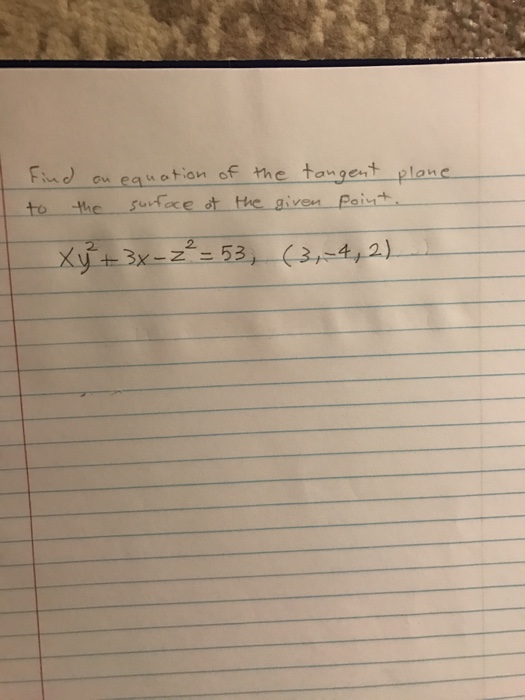 Find an equation of the tangent plane
to the surface at the given point.
xy² + 3x - z² = 53, (3, -4, 2)